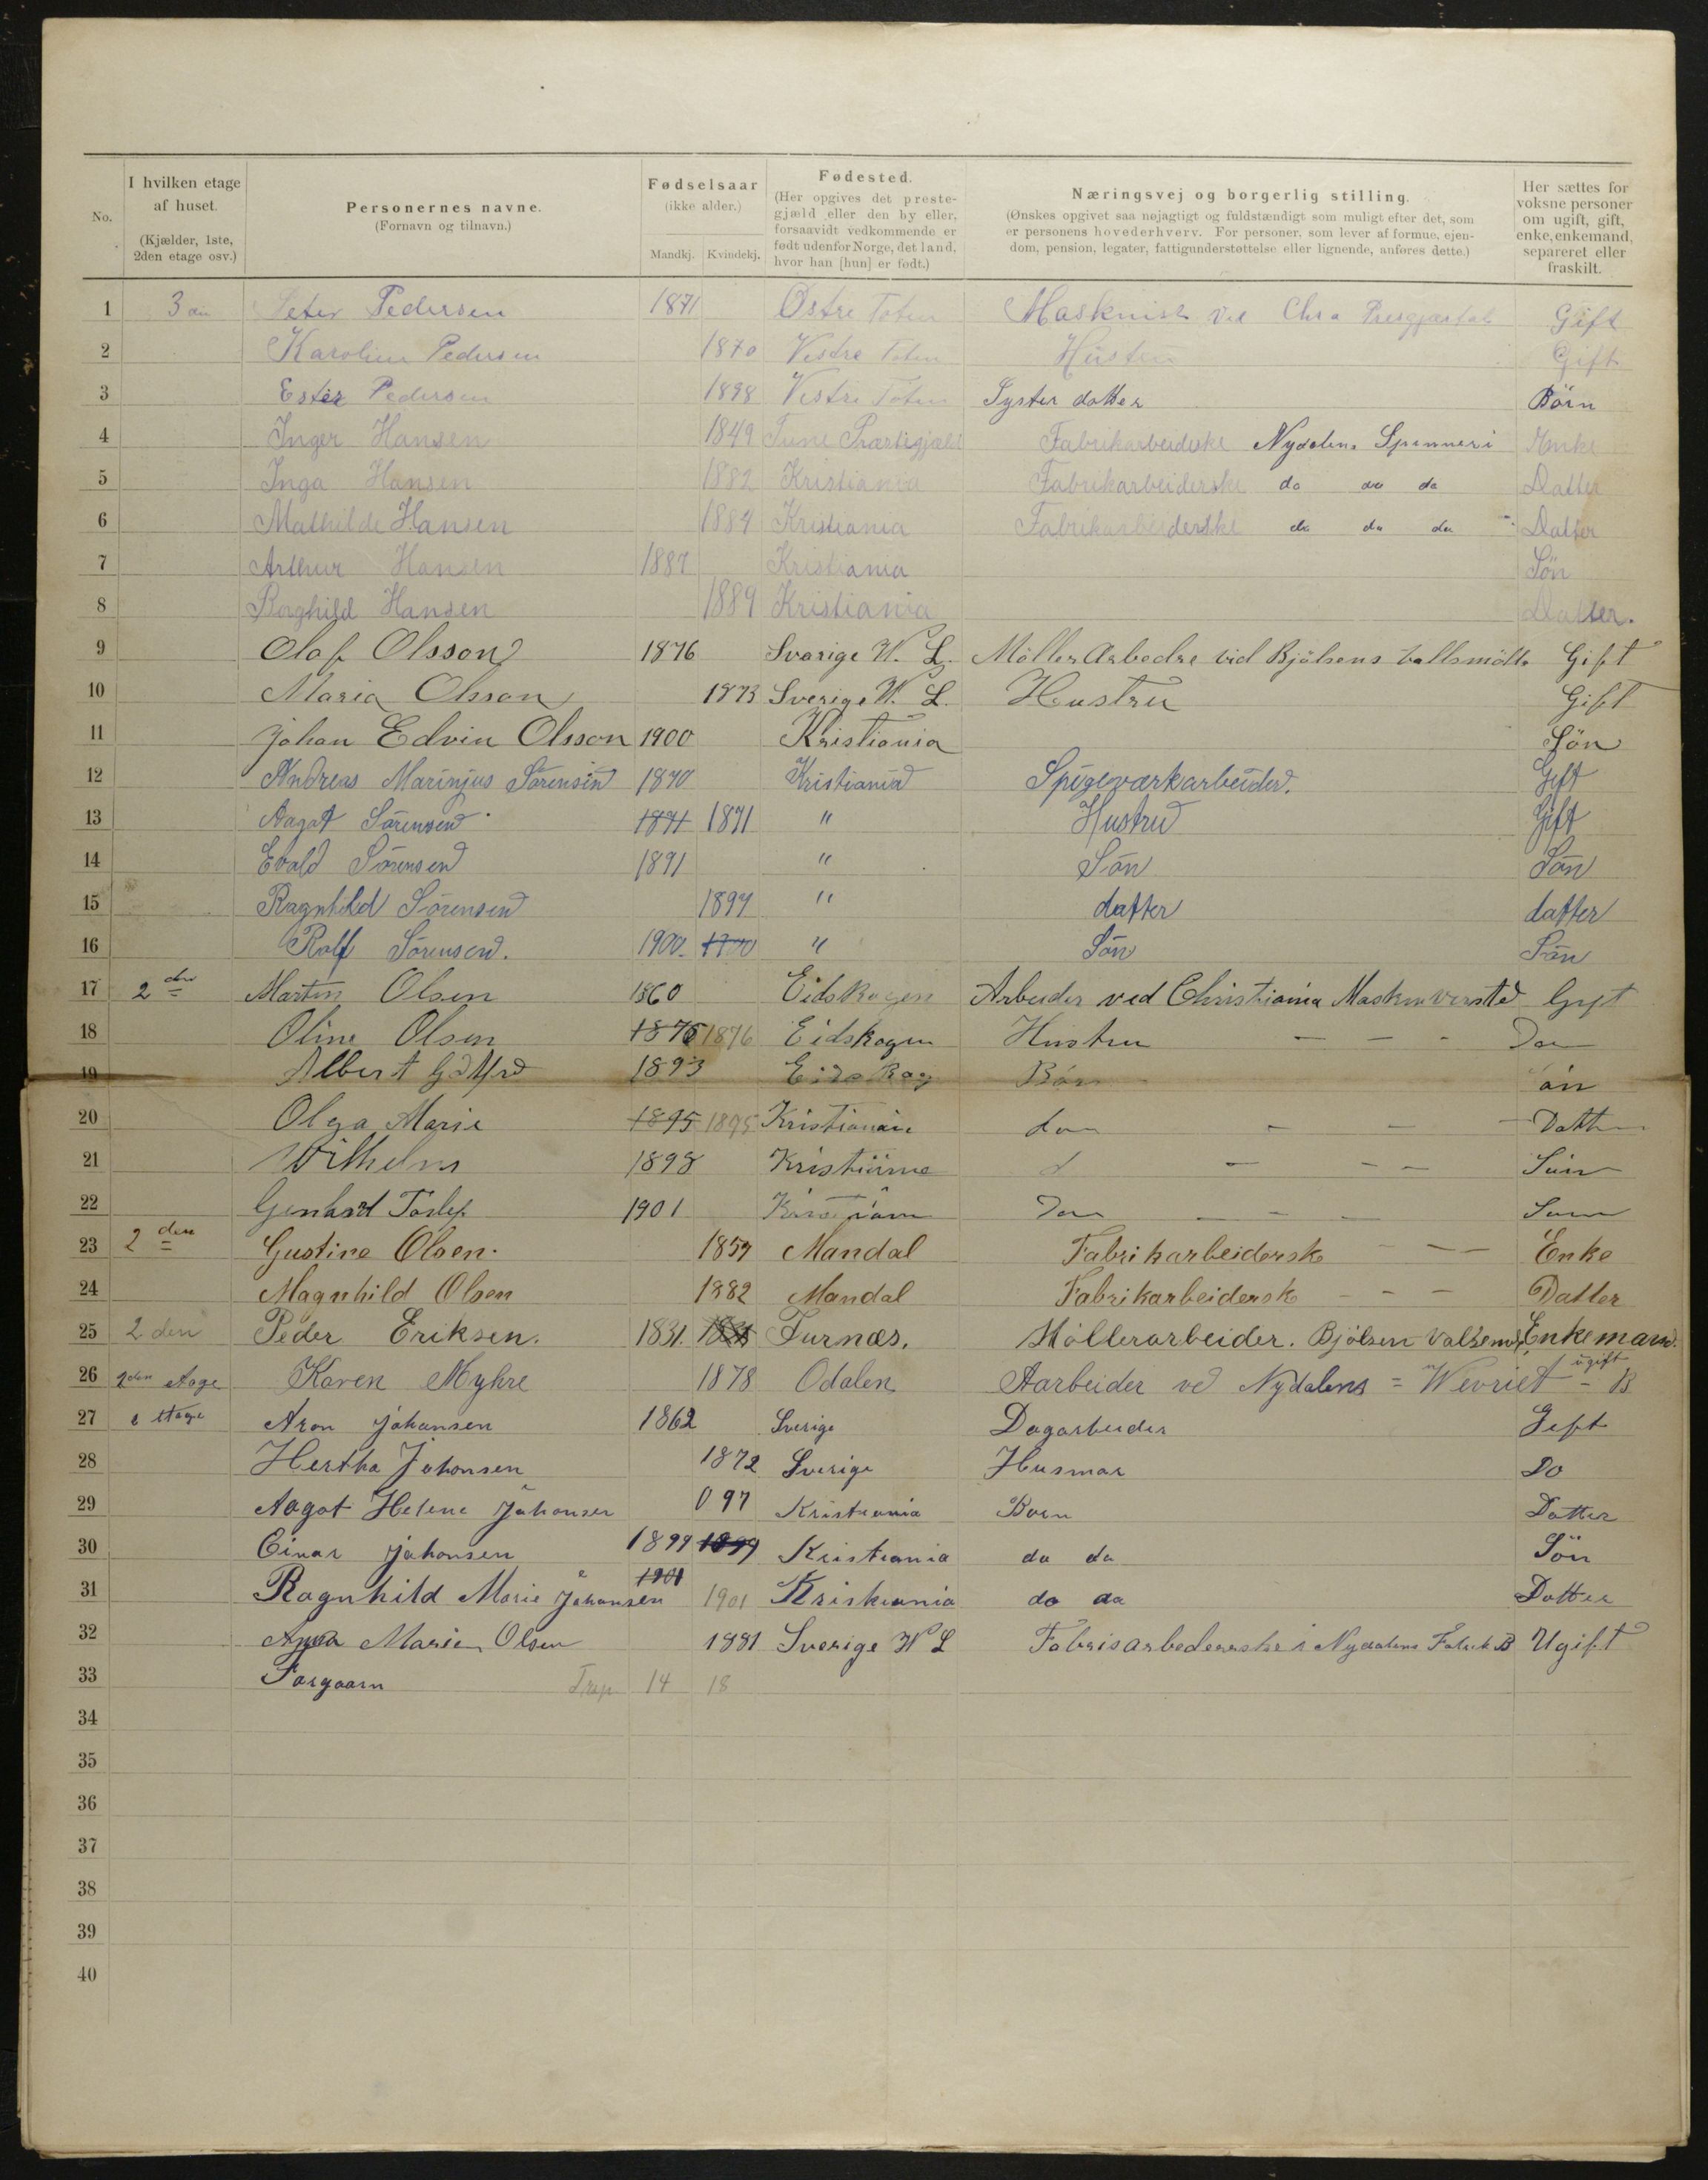 No. I hvilken etage af huset. (Kjælder, 1ste, 2den etage osv.) Personernes navne. (Fornavn og tilnavn.) Fødselsaar (ikke alder.) Mandkj. Kvindekj. Fødested. (Her opgives det prestegjæld eller den by eller, forsaavidt vedkommende er født udenfor Norge, det land, hvor han [hun] er født.) Næringsvej og borgerlig stilling. (Ønskes opgivet saa nøjagtigt og fuldstændigt som muligt efter det, som er personens hovederhverv. For personer, som lever af formue, ejendom, pension, legater, fattigunderstøttelse eller lignende, anføres dette.) Her sættes for voksne personer om ugift, gift, enke, enkemand, separeret eller fraskilt.
1 Peter Pedersen 1871 Østre Toten Gift
2 Karoline Pedersen 1870 Vestre Toten Gift
3 Ester Pedersen 1898 Vestre Toten Syster datter Børn
4 Inger Hansen 1849 Tune Fabrikarbeiderske Nydalens Spinneri Enke
5 Inga Hansen 1882 Kristiania Fabrikarbeiderske do do do Datter
6 Mathilde Hansen 1884 Kristiania Fabrikarbeiderske do do do Datter
7 Arthur Hansen 1887 Kristiania Søn
8 Borghild Hansen 1889 Kristiania Datter.
9 Olof Olsson 1876 Svarige W. L. Möller Arbedre vid Bjölsens Gift
10 Maria Olsson 1873 Sverige W. L. Hustru Gift
11 Johan Edvin Olsson 1900 Kristiania Sön
12 Andreas Marinjus Sörensen 1870 Kristiania Spigeværkarbeider. Gift
13 Aagot Sörensen 1871 1871 " Hustru Gift
14 Evald Sörensen 1891 " Sön Sön
15 Ragnhild Sörensen 1897 " datter datter
16 Rolf Sörensen. 1900. " Sön Sön
17 2 den Martin Olsen 1860 Eidskogen Arbeider ved Christiania Gift
18 Oline Olsen 1876 1876 Eidskogen Hustru - - -
19 Albert 1893 Eidskog Børn
20 Olga Marie 1895 1895 Kristiania - - - Datter
21 Wilhelm 1898 Kristiania - - - Søn
22 1901 Kristiania - - -
23 2 den Gustine Olsen. 1857 Mandal Fabrikarbeidersk - - - Enke
24 Magnhild Olsen 1882 Mandal Fabrikarbeidersk - - - Datter
25 2 den Peder Eriksen. 1831. Furnæs. Möllerarbeider. Bjölsen Enkemand.
26 2den Etage Karen Myhre 1878 Odalen Aarbeider ved Nydalens = Wevriet - ugift B
27 Etage Aron Johansen 1862 Sverige Dagarbeider Gift
28 Hertha Johansen 1872 Sverige Husmor Do
29 Aagot Helene Johansen 097 Kristiania Born Datter
30 Einar Johansen 1899 1899 Kristiania do do Sön
31 Ragnhild Marie Johansen 1901 1901 Kristiania do do Datter
32 Anna Marie Olsen 1881 Sverige W L Ugift
33 14 18
34
35
36
37
38
39
40